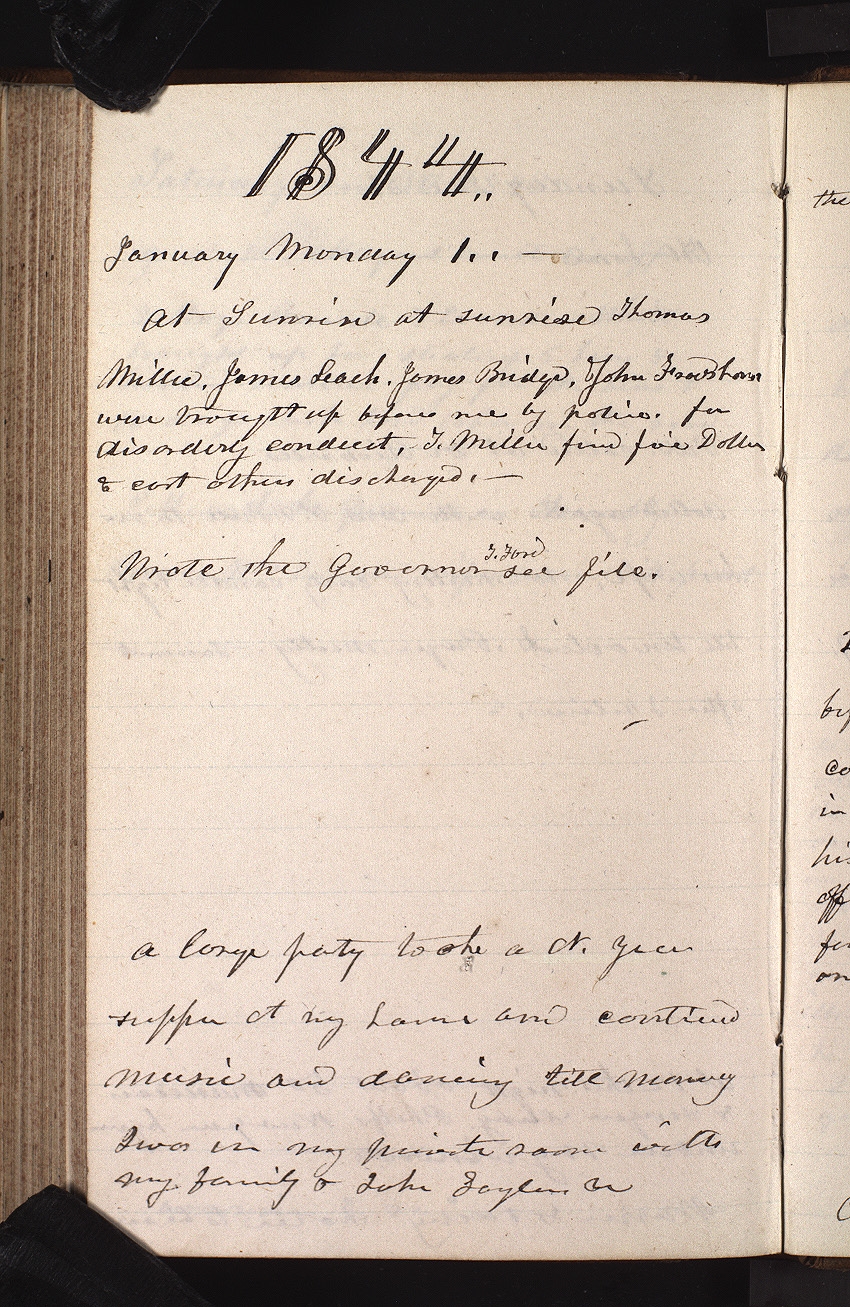 1844.
January Monday 1.. —
At Sunrise at sunrise Thomas
Miller, James Leach, James Bridge, & John
were brought up before me by police. for
disorderly conduct, T. Miller fined five Dollar
& cost others discharged. —
T. Ford
Wrote the Governor see file.
a large party took a N. Year
supper at my house and continued
music and dancing till morning
I was in my private room with
my family & John Taylor &c
the
by
co
in
his
off
for
on